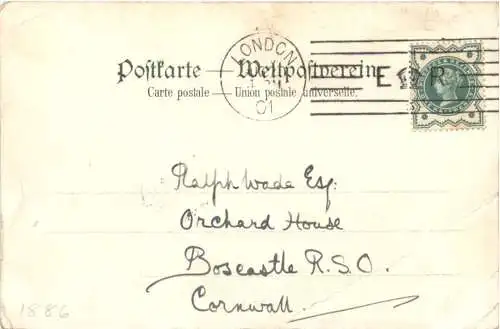 LONDON
01
E R
Postkarte — Weltpostverein
Carte postale — Union postale universelle.
Ralph Wade Esq:
Orchard House
Boscastle R.S.O.
Cornwall.
1886